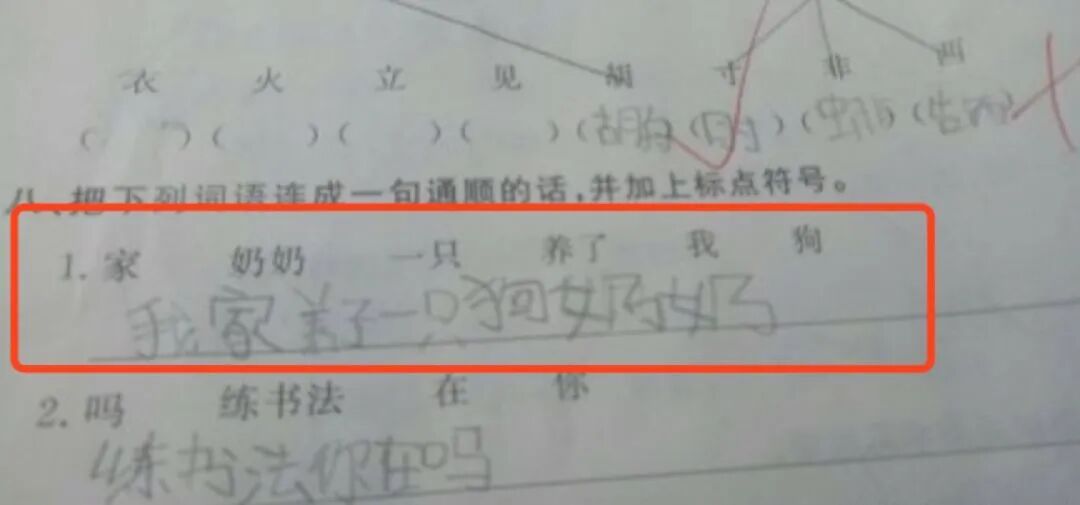 衣 火 立 见 胡 寸 非 西
( )( )( )( )(胡月)(日寸)(虫)(告西)
八、把下列词语连成一句通顺的话,并加上标点符号。
1. 家 奶奶 一只 养了 我 狗
我家养了一只狗奶奶
2. 吗 练书法 在 你
练书法你在吗